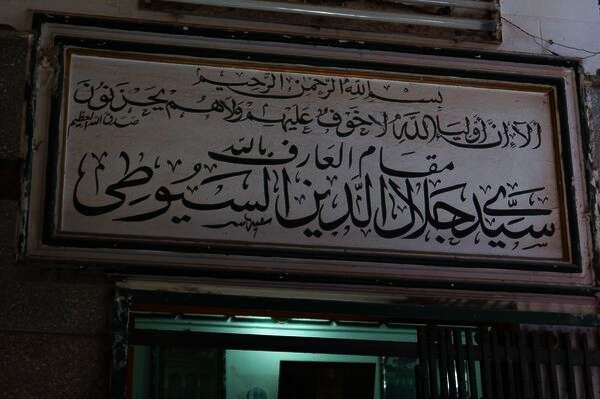 بسم الله الرحمن الرحيم
الا ان أولياء الله لا خوف عليهم ولا هم يحزنون
صدق الله العظيم
مقام العارف بالله
سيدى جلال الدين السيوطى